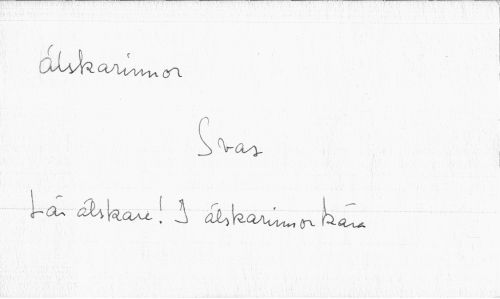 älskarinnor
Svas
I än älskare! I älskarinnor kära